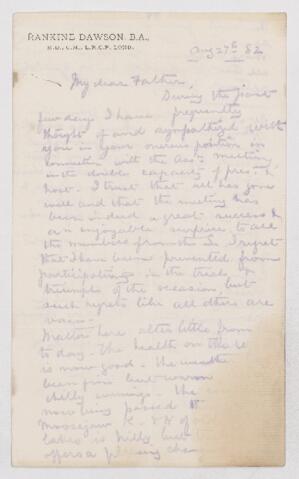 RANKINE DAWSON, B.A.,
M.D., C.M., L.R.C.P. LOND.
Aug 27th 82
My dear Father,
During the past
few days I have frequently
thought of and sympathized with
you in your onerous position in
connection with the Ass's meeting
in the double capacity of pres. &
host. I trust that all has gone
well and that the meeting has
been indeed a great success &
an enjoyable surprise to all
the members from the I regret
that I have been prevented from
participating in the trials &
triumphs of the occasion, but
such regrets like all others are
vain.
Matters here alter little from
to day. The health on the
is now good. The weather
been fine but warm
chilly evenings. The
now being passed
Moosejaw
lakes is hilly but
offers a pleasing